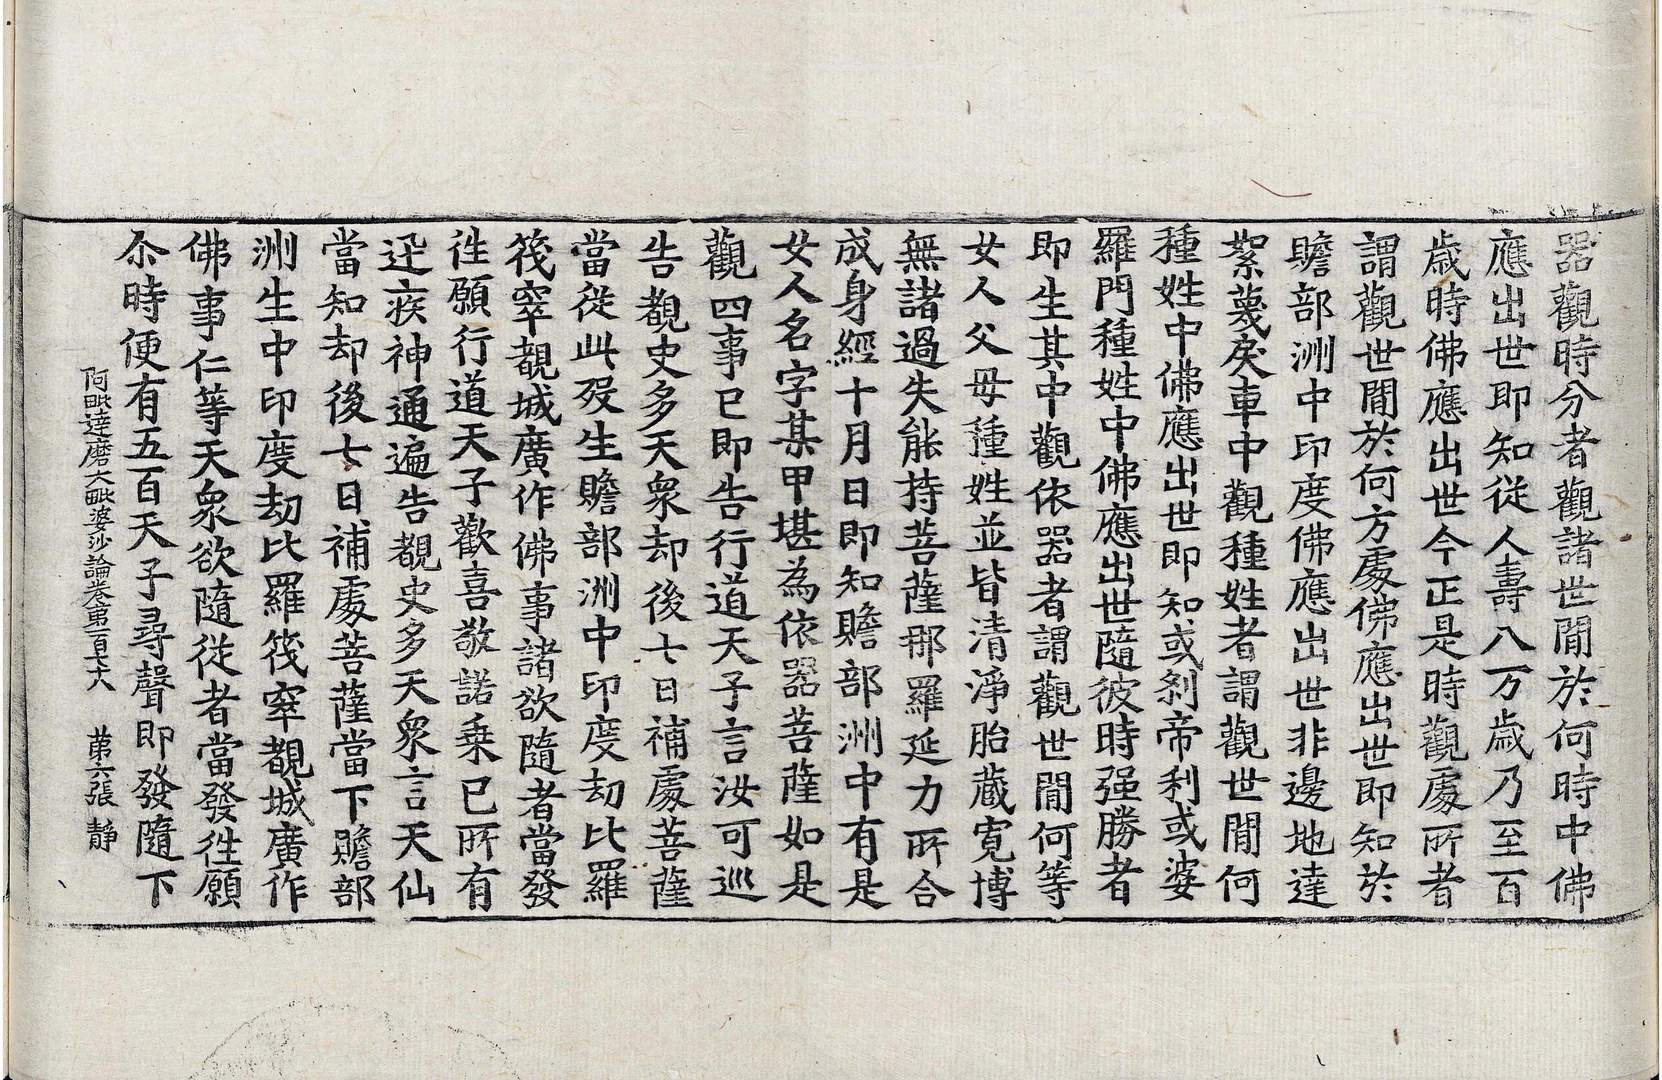 器觀時分者觀諸世間於何時中佛
應出世即知從人壽八万歲乃至百
歲時佛應出世今正是時觀處所者
謂觀世間於何方處佛應出世即知於
贍部洲中印度佛應出世非邊地達
絮蔑戾車中觀種姓者謂觀世間何
種姓中佛應出世即知或剎帝利或婆
羅門種姓中佛應出世隨彼時强勝者
即生其中觀依器者謂觀世間何等
女人父母種姓並皆清淨胎藏寬博
無諸過失能持菩薩那羅延力所合
成身經十月日即知贍部洲中有是
女人名字某甲堪為依器菩薩如是
觀四事已即告行道天子言汝可巡
告覩史多天衆却後七日補處菩薩
當從此歿生贍部洲中印度劫比羅
筏窣覩城廣作佛事諸欲隨者當發
徃願行道天子歡喜敬諾乗已所有
迅疾神通遍告覩史多天衆言天仙
當知却後七日補處菩薩當下贍部
洲生中印度劫比羅筏窣覩城廣作
佛事仁等天衆欲隨從者當發徃願
尒時便有五百天子尋聲即發隨下
阿毗達磨大毗婆沙論卷第一百七十八 第六張 靜